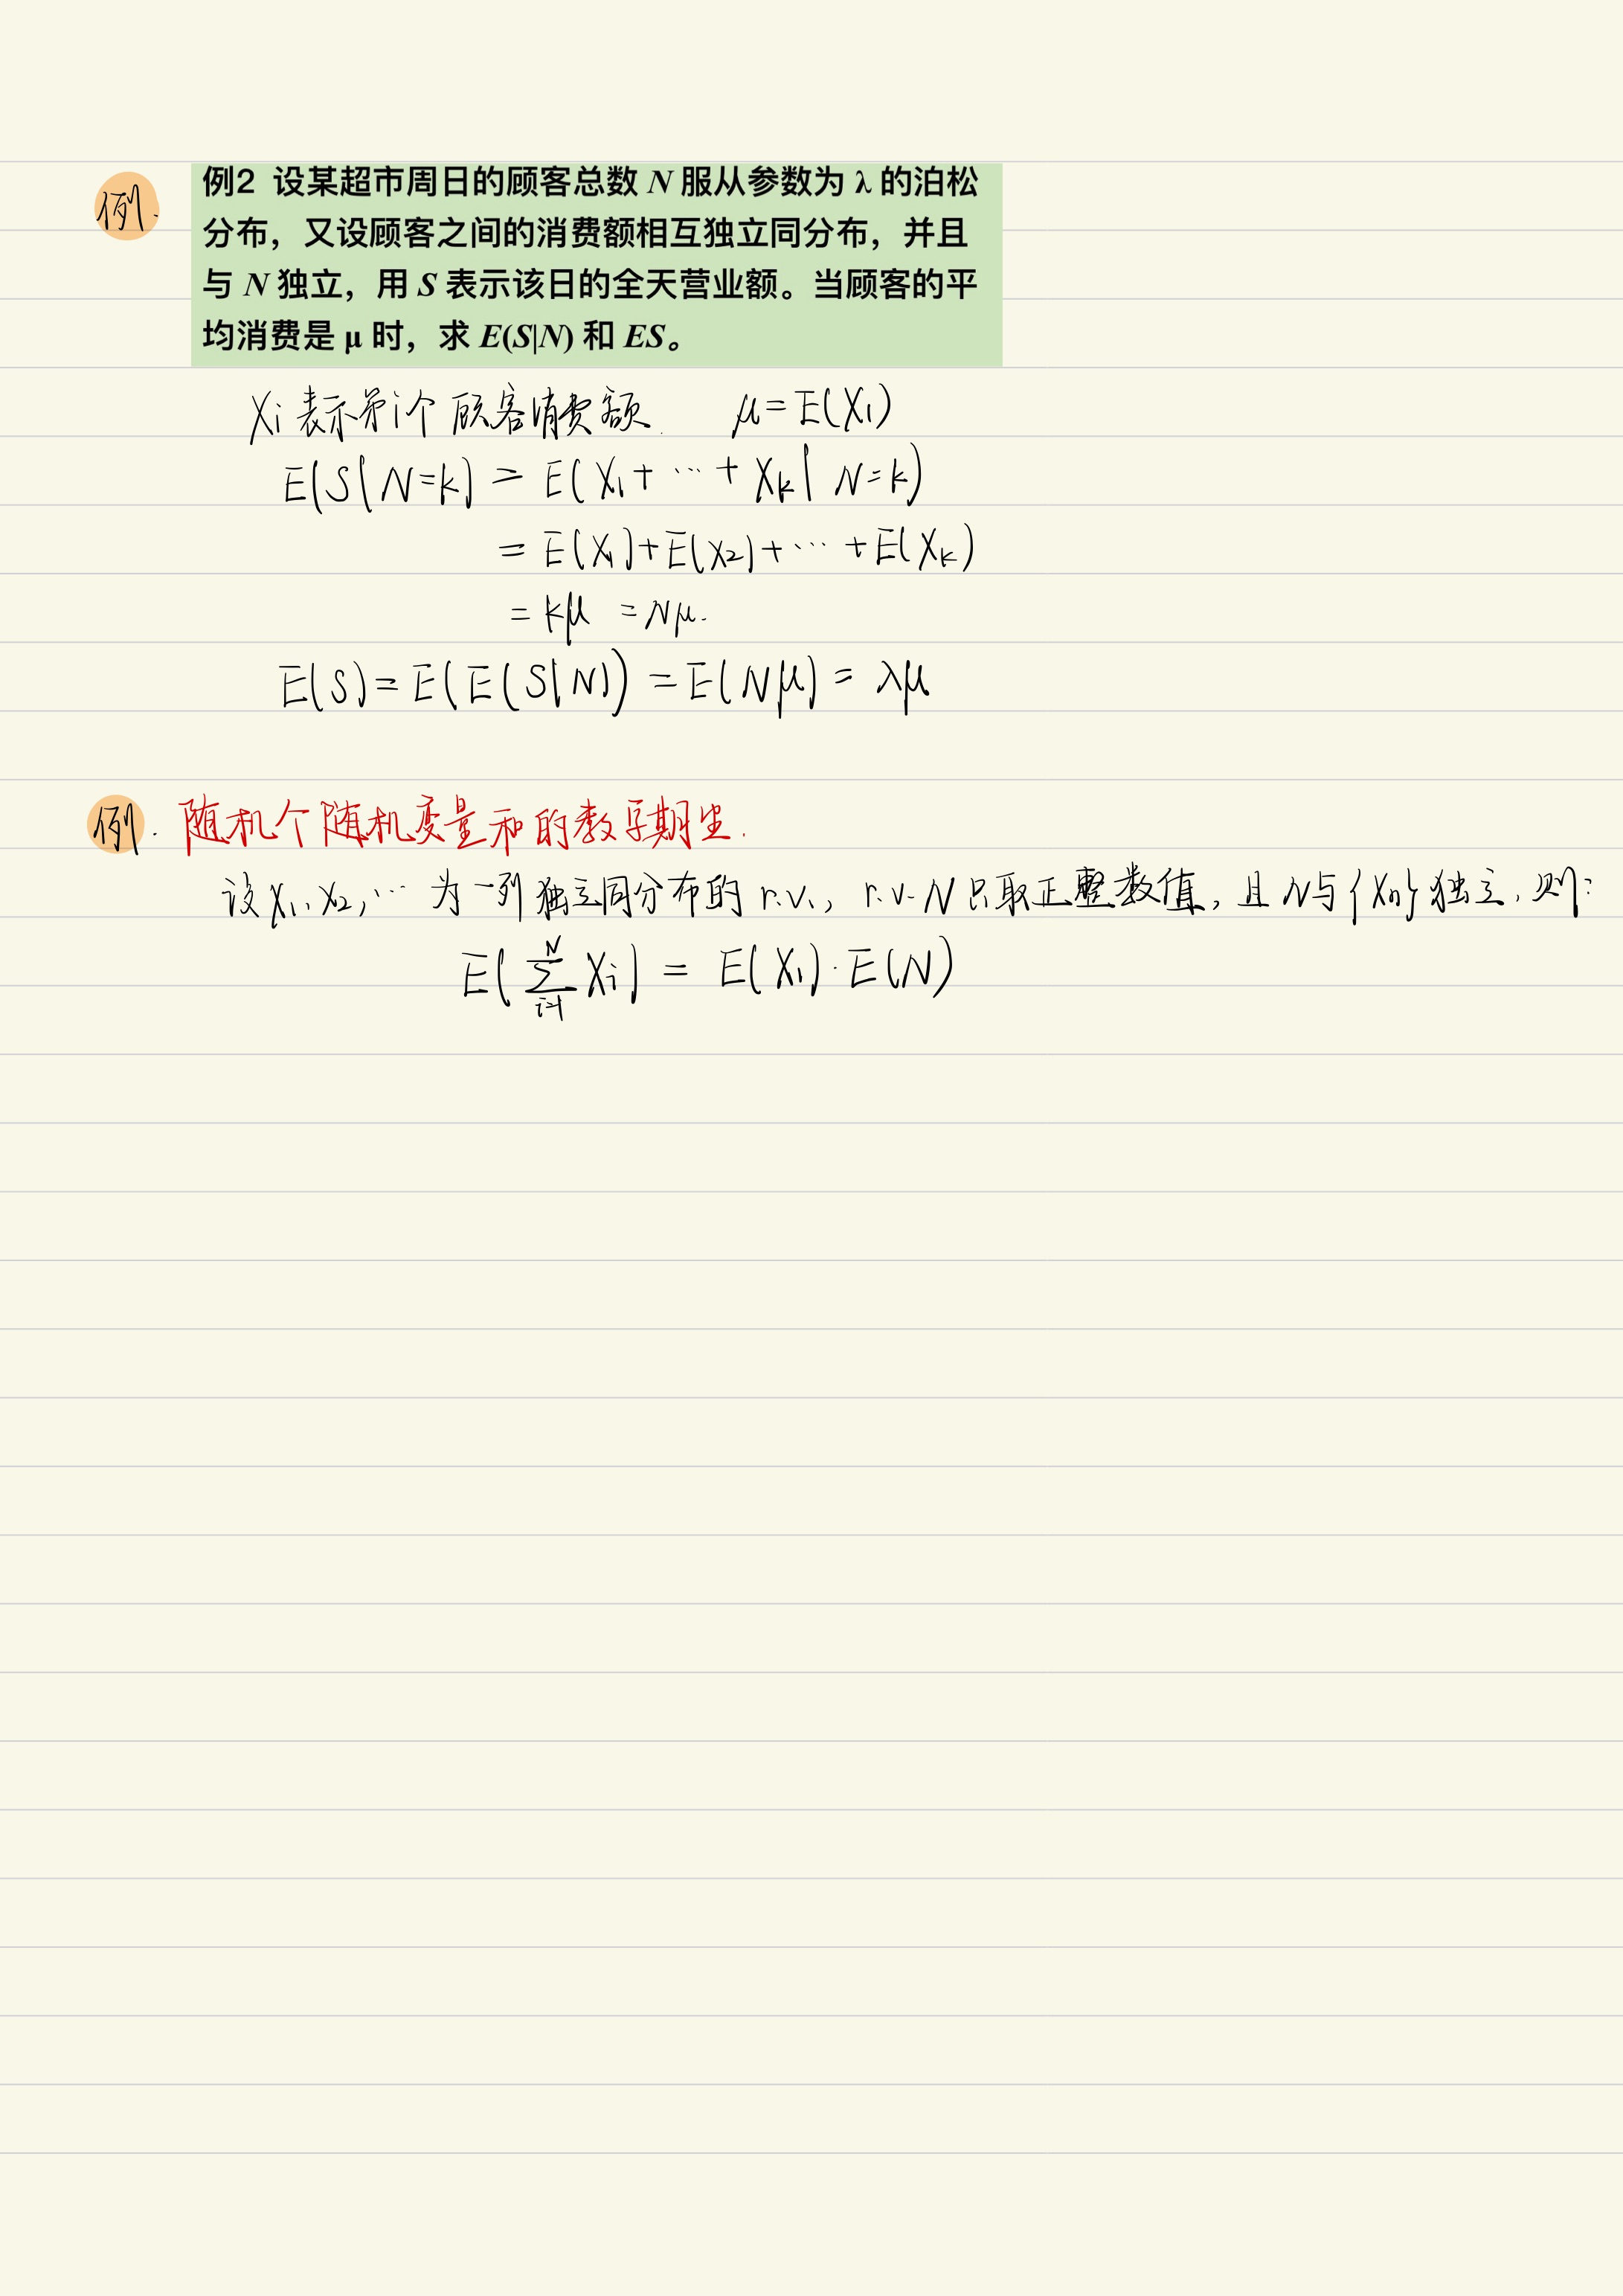 例.
例2 设某超市周日的顾客总数 N 服从参数为 λ 的泊松
分布，又设顾客之间的消费额相互独立同分布，并且
与 N 独立，用 S 表示该日的全天营业额。当顾客的平
均消费是 μ 时，求 E(S|N) 和 ES。
Xi 表示第i个顾客消费额. μ=E(X₁)
E(S|N=k) = E(X₁+⋯+Xk| N=k)
= E(X₁)+E(X₂)+⋯+E(Xk)
= kμ = Nμ.
E(S)=E(E(S|N)) = E(Nμ) = λμ
例. 随机个随机变量和的数学期望.
设X₁,X₂,⋯ 为一列独立同分布的 r.v., r.v. N只取正整数值, 且N与{Xn}独立, 则:
E(∑_{i=1}^{N} Xi) = E(X₁)·E(N)